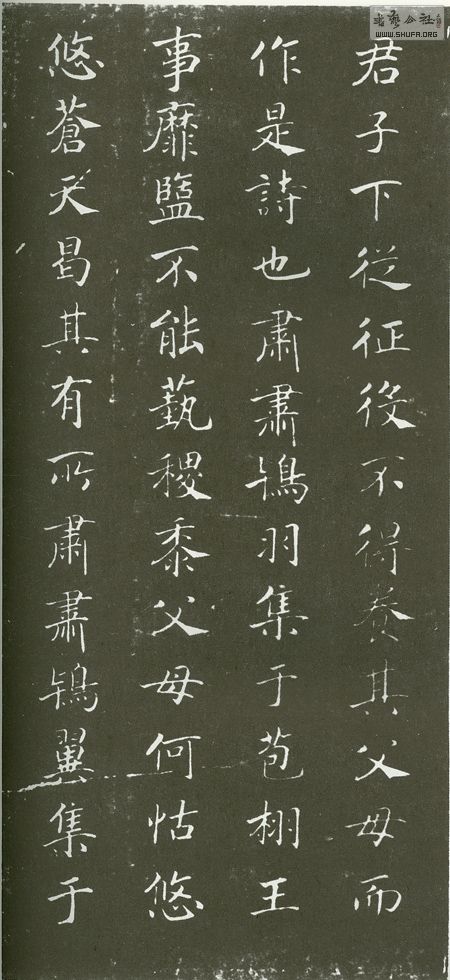 君子下從征役不得養其父母而
作是詩也肅肅鴇羽集于苞栩王
事靡盬不能蓺稷黍父母何怙悠
悠蒼天曷其有所肅肅鴇翼集于
书艺公社
WWW.SHUFA.ORG